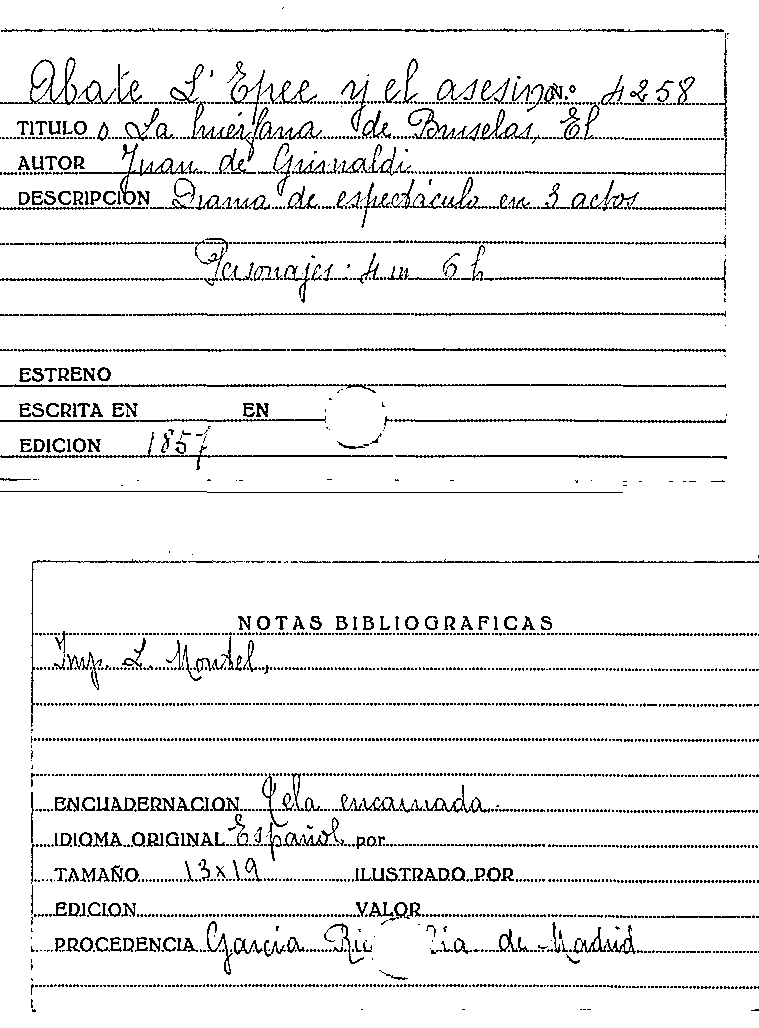 Abate L'Epee y el asesino N.º 4258
TITULO o La huérfana de Bruselas, El
AUTOR Juan de Grimaldi
DESCRIPCION Drama de espectáculo en 3 actos
Personajes: 4 m 6 h
ESTRENO
ESCRITA EN EN
EDICION 1857
NOTAS BIBLIOGRAFICAS
Imp. L. Montel,
ENCUADERNACION Tela encarnada.
IDIOMA ORIGINAL Español por
TAMAÑO 13x19 ILUSTRADO POR
EDICION VALOR
PROCEDENCIA García Ric de Madrid